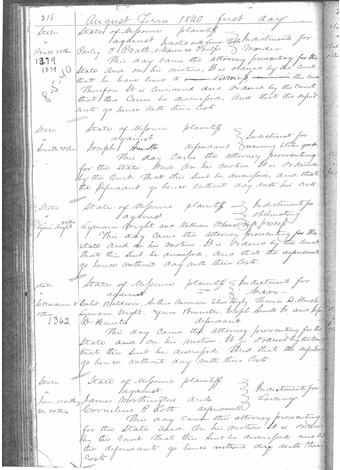 316 August Term 1840 first day
State State of Missouri plaintiff
against Indictment for
Pratt & others Parley P. Pratt & Maurice Phelps defendants Murder
1379 This day came the attorney prosecuting for the
State and on his motion it is ordered by the court
8-5-40 that he have leave to dismiss the
Therefore It is considered and ordered by the court
that this cause be dismissed, and that the defend
ants go hence with their costs
State State of Missouri plaintiff
against Indictment for
Smith Joseph Smith defendant receiving stolen goods
This day came the attorney prosecuting
for the state, and on his motion It is ordered
by the Court that this suit be dismissed, and that
the defendant go hence without day with his costs.
State State of Missouri plaintiff Indictment for
against
Lyman Wight Lyman Wight and William
This day came the attorney prosecuting for the
State and on his motion It is ordered by the court
that this suit be dismissed. And that the defendants
go hence without day with their costs.
State State of Missouri plaintiff Indictment for
against Arson
Caleb Baldwin Arthur Morrison Elias Higby Thomas B. Marsh
1362 Lyman Wight Joseph Smith Jr and
defendants
This day came the attorney prosecuting for the
State and on his motion. It is ordered by the court
that this suit be dismissed. And that the defend
go hence without day with their costs.
State State of Missouri plaintiff
against Indictment for
James Worthington and Larceny
Cornelius P. Lott defendants
This day came the attorney prosecuting
for the State and on his motion It is ordered
by the Court that this suit be dismissed and
the defendants go hence without day with their
costs